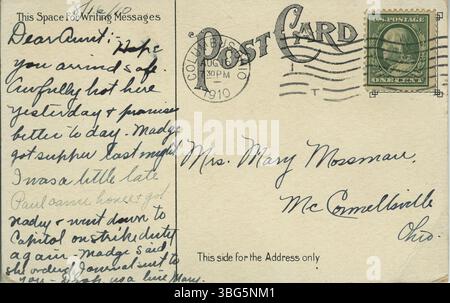 This Space For Writing Messages
8/16/10
Dear Aunt:- Hope
you arrived safe.
Awfully hot here
yesterday & promise
better to day. Madge
got supper last night
I was a little late
Paul came home & got
ready & went down to
Capitol on strike duty
again - Madge said
she ordered Journal sent to
you - Drop us a line Mary.
POST CARD
COLUMBUS, OHIO
AUG
30 PM
1910
U.S. POSTAGE
ONE CENT
Mrs. Mary Mossman,
McConnellsville
Ohio.
This side for the Address only
alamy
Image ID: 3BG5NM1
www.alamy.com